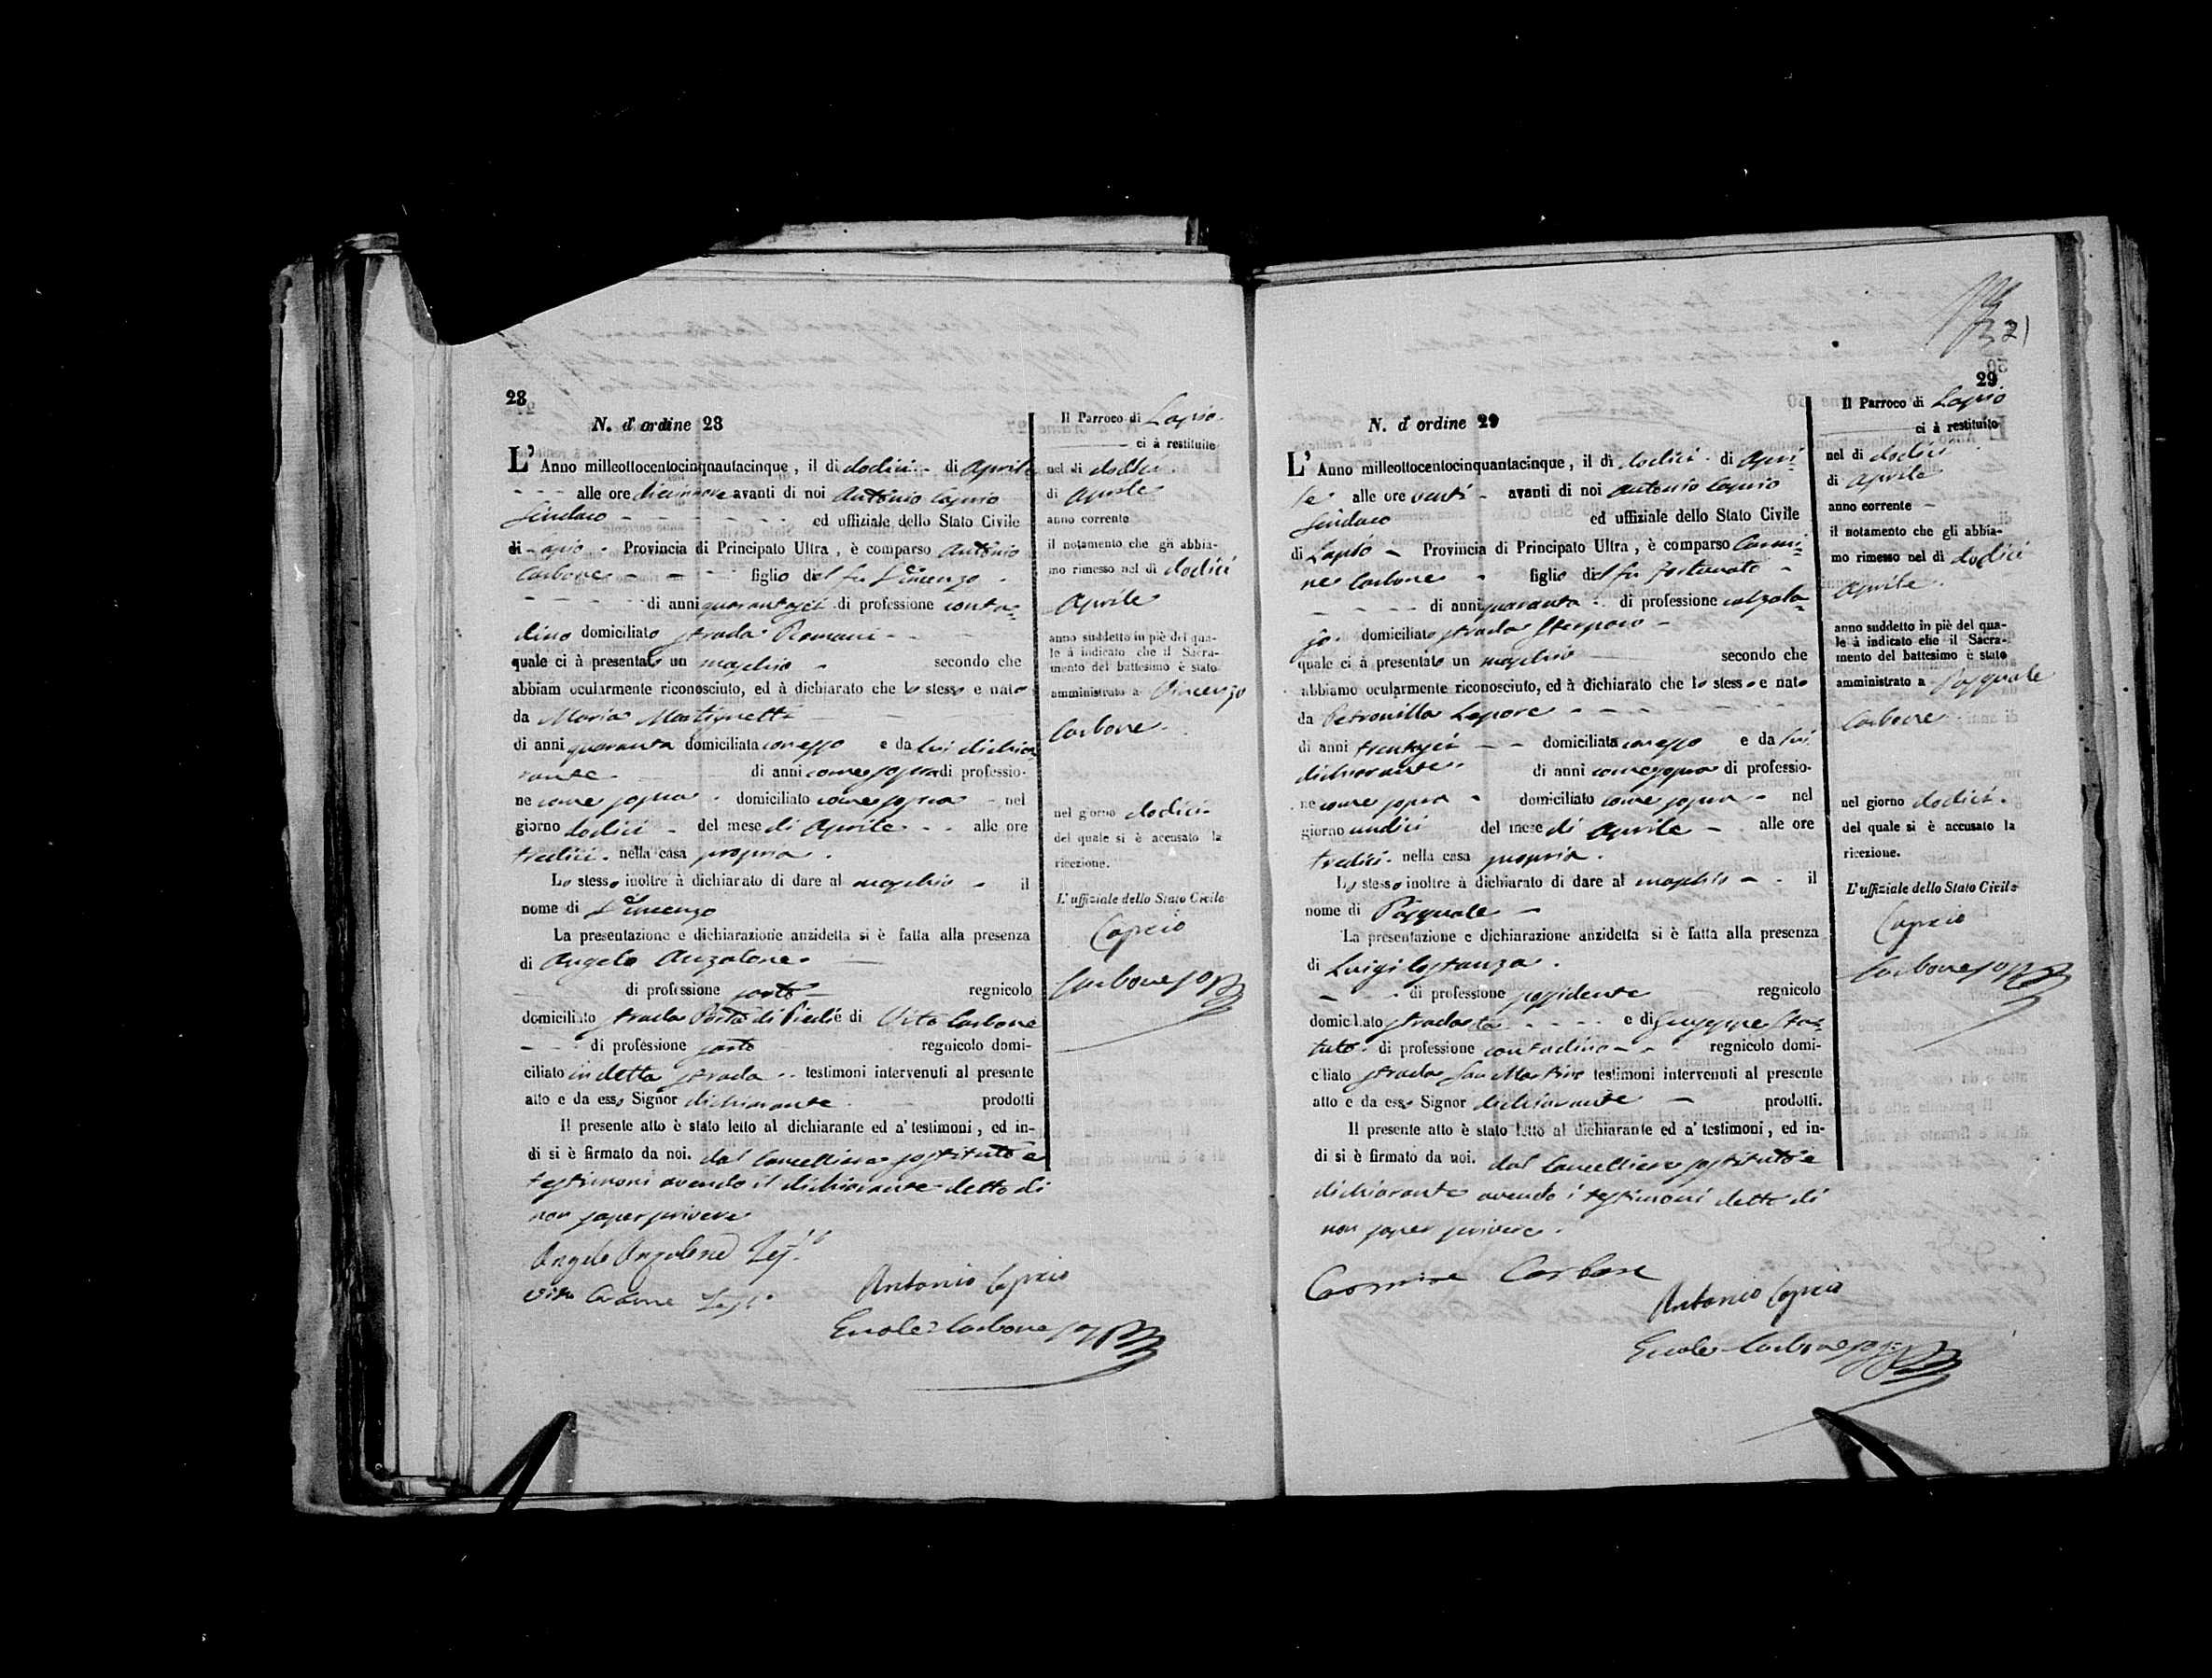 28
N. d'ordine 28
L'Anno milleottocentocinquantacinque, il di dodici di Aprile
alle ore diecinnove avanti di noi Antonio Caprio
Sindaco ed uffiziale dello Stato Civile
di Lapio Provincia di Principato Ultra, è comparso Antonio
Carbone figlio del fu Vincenzo
di anni quarantasei di professione conta=
dino domiciliato strada Romani
quale ci à presentato un maschio secondo che
abbiam ocularmente riconosciuto, ed à dichiarato che lo stesso e nato
da Maria Mastignetti
di anni quaranta domiciliata con esso e da lui dichia
rante di anni come sopra di professio-
ne come sopra domiciliato come sopra nel
giorno dodici del mese di Aprile alle ore
tredici nella casa propria.
Lo stesso inoltre à dichiarato di dare al maschio il
nome di Vincenzo
La presentazione e dichiarazione anzidetta si è fatta alla presenza
di Angelo Anzalone
di professione sarto regnicolo
domiciliato strada Porta di Piedi e di Vito Carbone
di professione sarto regnicolo domi-
ciliato in detta strada testimoni intervenuti al presente
atto e da esso Signor dichiarante prodotti
Il presente atto è stato letto al dichiarante ed a' testimoni, ed in-
di si è firmato da noi. dal Cancelliere sostituto e
testimoni avendo il dichiarante detto di
non saper scrivere
Angelo Anzalone Test.o
Vito Carbone Test.o
Antonio Caprio
Ercole Carbone sos
Il Parroco di Lapio
ci à restituito
nel di dodici
di Aprile
anno corrente
il notamento che gli abbia-
mo rimesso nel di dodici
Aprile
anno suddetto in piè del qua-
le à indicato che il Sacra-
mento del battesimo è stato
amministrato a Vincenzo
Carbone
nel giorno dodici
del quale si è accusato la
ricezione.
L'uffiziale dello Stato Civile
Caprio
Carbone sos
29
N. d'ordine 29
L'Anno milleottocentocinquantacinque, il di dodici di Apri=
le alle ore venti avanti di noi Antonio Caprio
Sindaco ed uffiziale dello Stato Civile
di Lapio Provincia di Principato Ultra, è comparso Carmi=
ne Carbone figlio del fu Fortunato
di anni quaranta di professione calzola=
jo domiciliato strada
quale ci à presentato un maschio secondo che
abbiamo ocularmente riconosciuto, ed à dichiarato che lo stesso e nato
da Petronilla Lepore
di anni trentasei domiciliata con esso e da lui
dichiarante di anni come sopra di professio-
ne come sopra domiciliato come sopra nel
giorno undici del mese di Aprile alle ore
tredici nella casa propria.
Lo stesso inoltre à dichiarato di dare al maschio il
nome di Pasquale
La presentazione e dichiarazione anzidetta si è fatta alla presenza
di Luigi Costanza
di professione possidente regnicolo
domiciliato strada e di Giuseppe Sta=
tuto di professione contadino regnicolo domi-
ciliato strada San Martino testimoni intervenuti al presente
atto e da esso Signor dichiarante prodotti.
Il presente atto è stato letto al dichiarante ed a' testimoni, ed in-
di si è firmato da noi. dal Cancelliere sostituto e
dichiarante avendo i testimoni detto di
non saper scrivere.
Carmine Carbone
Antonio Caprio
Ercole Carbone sos
Il Parroco di Lapio
ci à restituito
nel di dodici
di Aprile
anno corrente
il notamento che gli abbia-
mo rimesso nel di dodici
Aprile
anno suddetto in piè del qua-
le à indicato che il Sacra-
mento del battesimo è stato
amministrato a Pasquale
Carbone
nel giorno dodici.
del quale si è accusato la
ricezione.
L'uffiziale dello Stato Civile
Caprio
Carbone sos